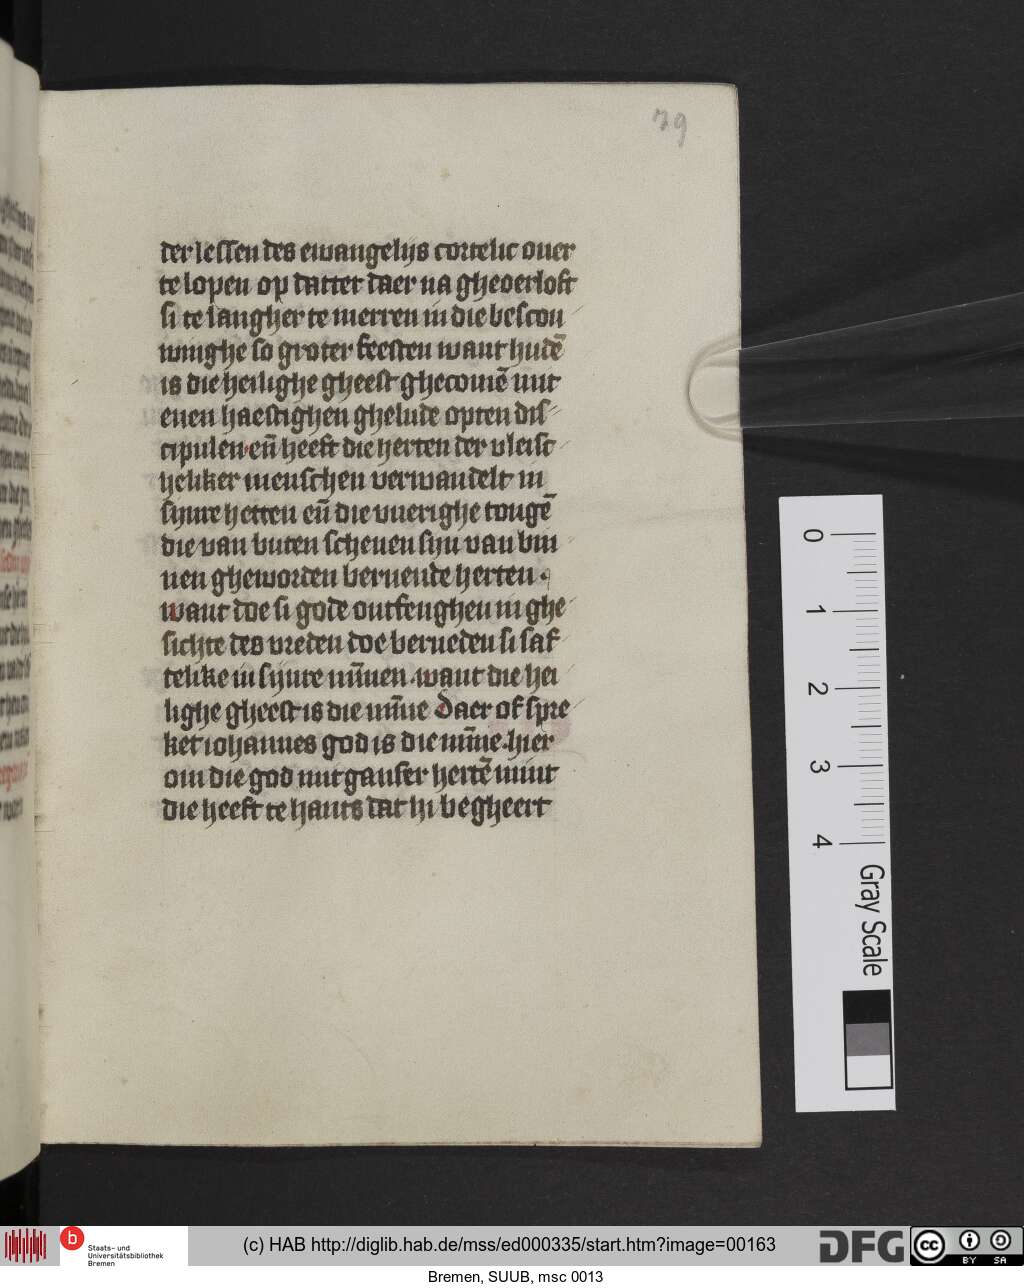 79
der lessen des ewangelijs cortelic ouer
te lopen op dattet daer na gheoerloft
si te langher te merren in die bescou
winghe so groter feesten want hudē
is die heilighe gheest ghecomē mit
enen haestighen ghelude opten dis-
cipulen eñ heeft die herten der vleisc
heliker menschen verwandelt in
synre hetten eñ die vuerighe tongē
die van buten schenen syn van bin
nen gheworden bernende herten .
want doe si gode ontfenghen in ghe
sichte des vreden doe berneden si saf
telike in synre mīnen . want die hei
lighe gheest is die mīne Daer of spre
ket iohannes god is die mīne . hier
om die god mit ganser hertē mint
die heeft te hants dat hi begheert
0
1
2
3
4
Gray Scale
b
Staats- und
Universitätsbibliothek
Bremen
(c) HAB http://diglib.hab.de/mss/ed000335/start.htm?image=00163
DFG
cc
BY SA
Bremen, SUUB, msc 0013